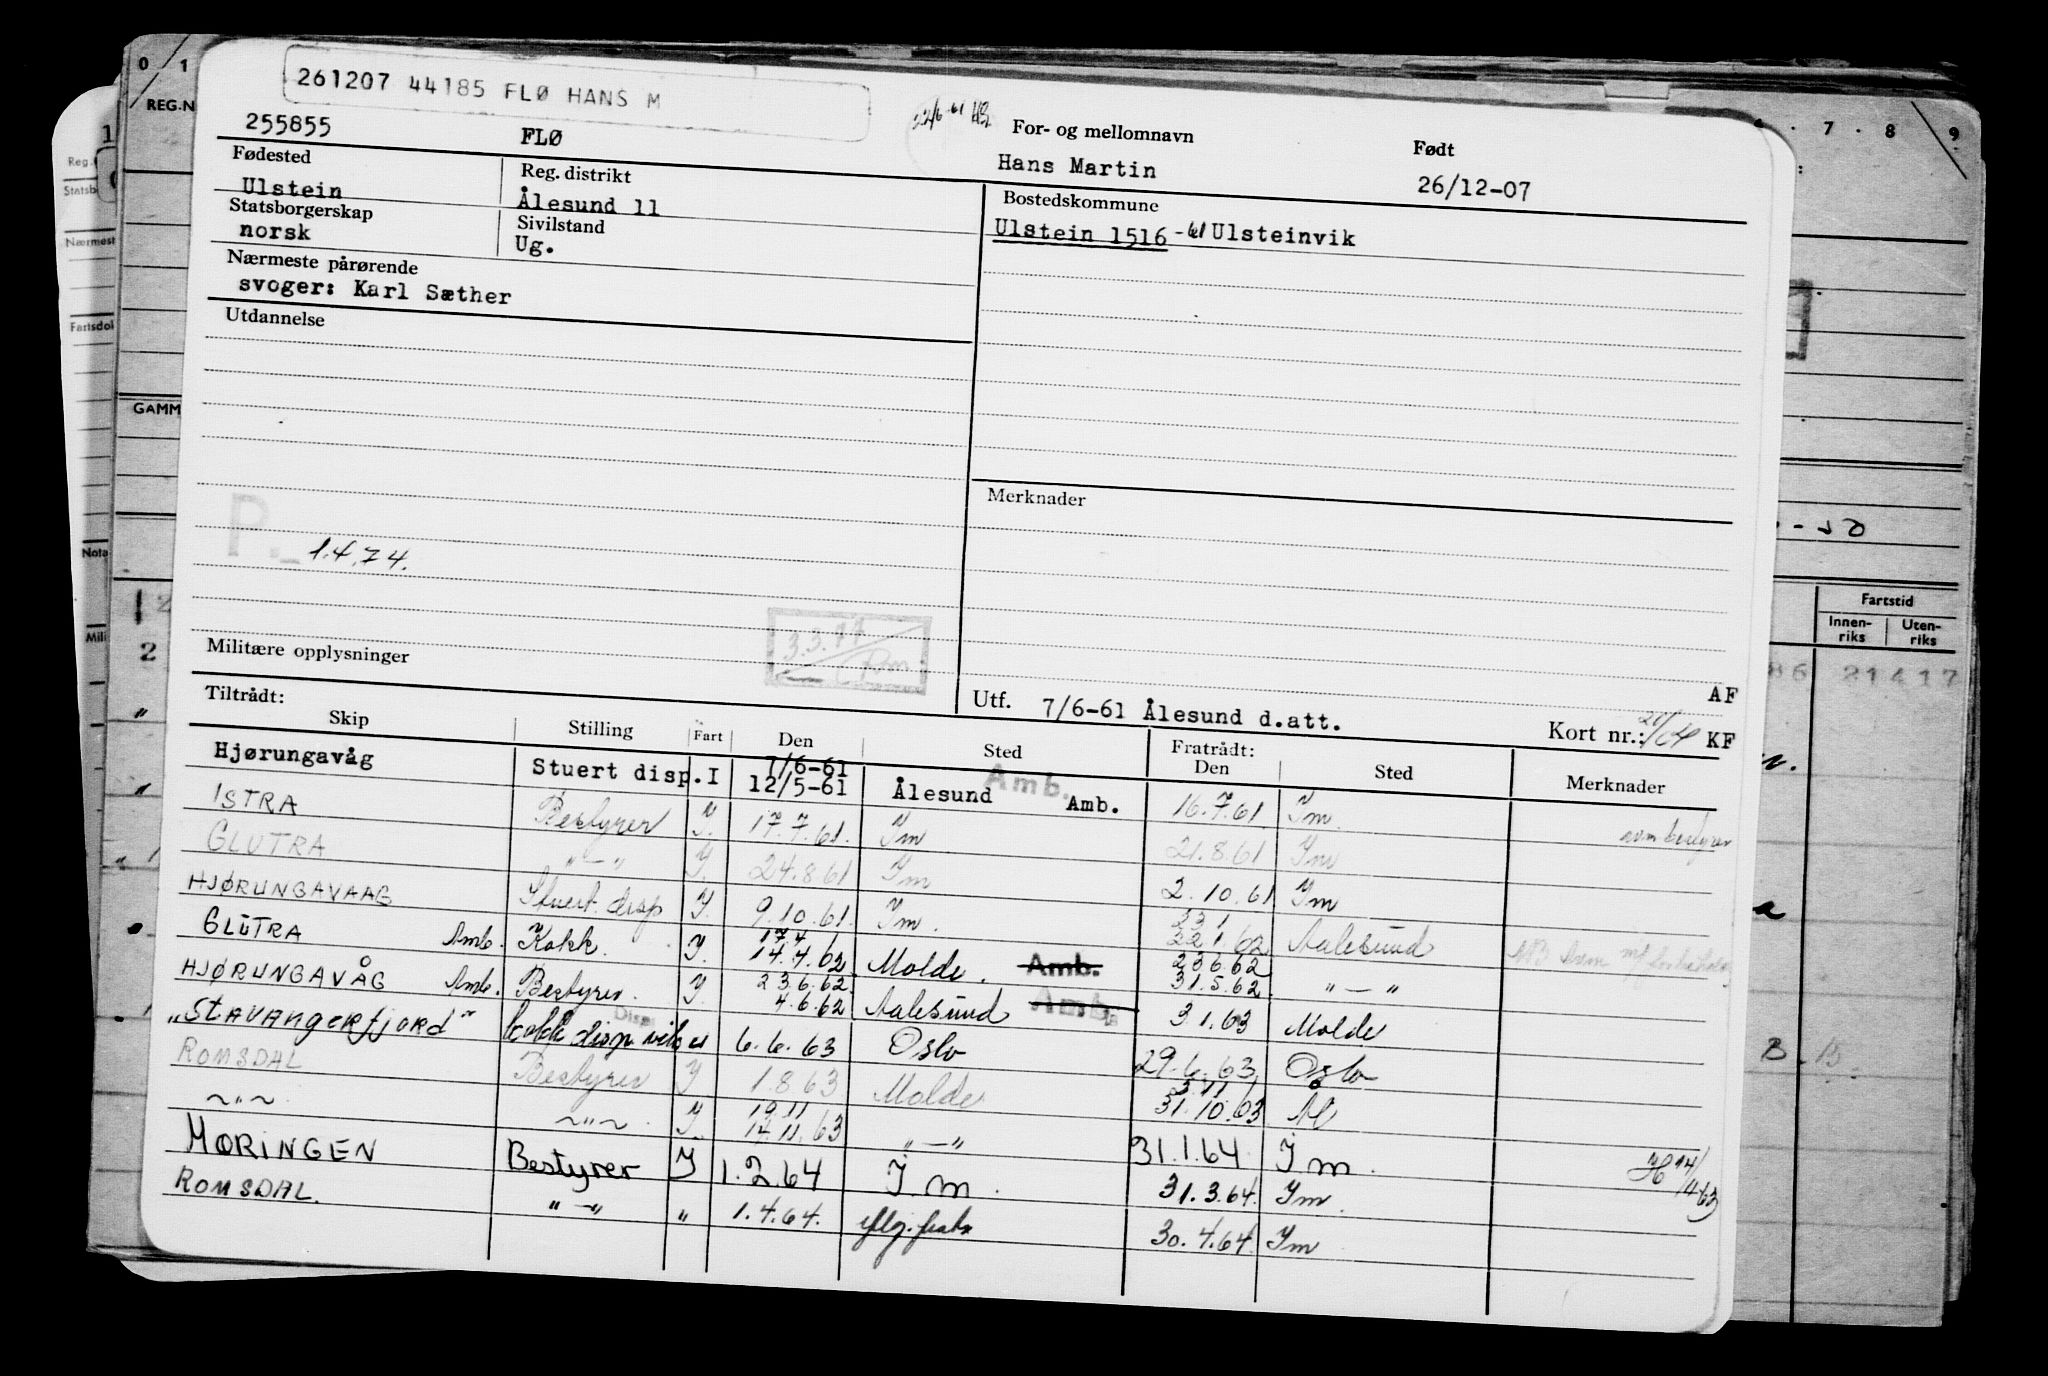 261207 44185 FLØ HANS M
255855 FLØ
For- og mellomnavn
Hans Martin
Født
26/12-07
Fødested
Ulstein
Reg. distrikt
Ålesund 11
Bostedskommune
Ulstein 1516 -61 Ulsteinvik
Statsborgerskap
norsk
Sivilstand
Ug.
Nærmeste pårørende
svoger: Karl Sæther
Utdannelse
Merknader
P. 1.4.74.
3.3.77
Militære opplysninger
AF
Utf. 7/6-61 Ålesund d.att.
Kort nr.: KF
Tiltrådt:
Skip Stilling Fart Den Sted Fratrådt: Den Sted Merknader
Hjørungavåg Stuert disp. I 7/6-61 12/5-61 Ålesund Amb. Amb. 16.7.61 Im
ISTRA Bestyrer I. 17.7.61. Im 21.8.61 Im
GLUTRA " — " I. 24.8.61 Im 2.10.61 Im
HJØRUNGAVAAG Stuert. disp I. 9.10.61. Im. 23 1 22.1.62 Aalesund
GLUTRA Amb. Kokk. I. 17.4 14.4.62 Molde. Amb. 23.6.62 31.5.62. " — "
HJØRUNGAVÅG Amb. Bestyrer. I. 23.6.62. 4.6.62 Aalesund Amb. 3.1.63 Molde
"Stavangerfjord" kokk disp Disp 6.6.63 Oslo 29.6.63. Oslo
ROMSDAL Bestyrer I 1.8.63 Molde 31.10.63
~"~ ~"~ I. 19.11 14.11.63 " — " 31.1.64. I.m.
MØRINGEN Bestyrer I 1.2.64 I.m. 31.3.64. Im.
ROMSDAL. " — " " 1.4.64. 30.4.64. Im
REG.N
GAMM
Reg.
Statsb
Nærmest
Fartsdol
Nota
Mili
0 1
7 . 8 . 9
Fartstid
Innen-riks
Uten-riks
21417